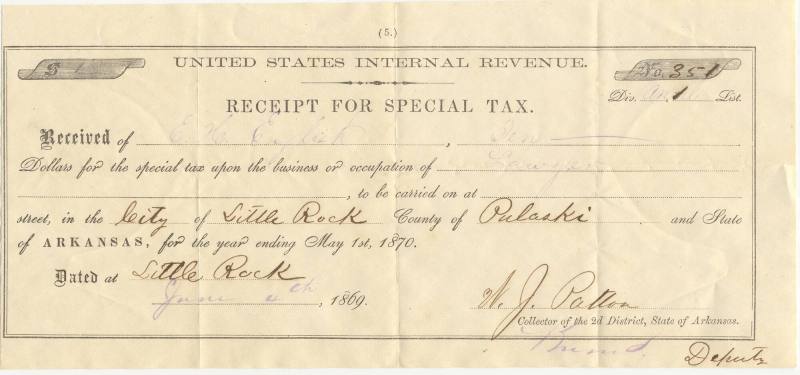 (5.)
$
UNITED STATES INTERNAL REVENUE.
No. 351
RECEIPT FOR SPECIAL TAX.
Div. 1 List.
Received of E. H. English, Ten
Dollars for the special tax upon the business or occupation of Lawyer
, to be carried on at
street, in the City of Little Rock County of Pulaski and State
of ARKANSAS, for the year ending May 1st, 1870.
Dated at Little Rock
June 4th, 1869.
W. J. Patton
Collector of the 2d District, State of Arkansas.
Deputy